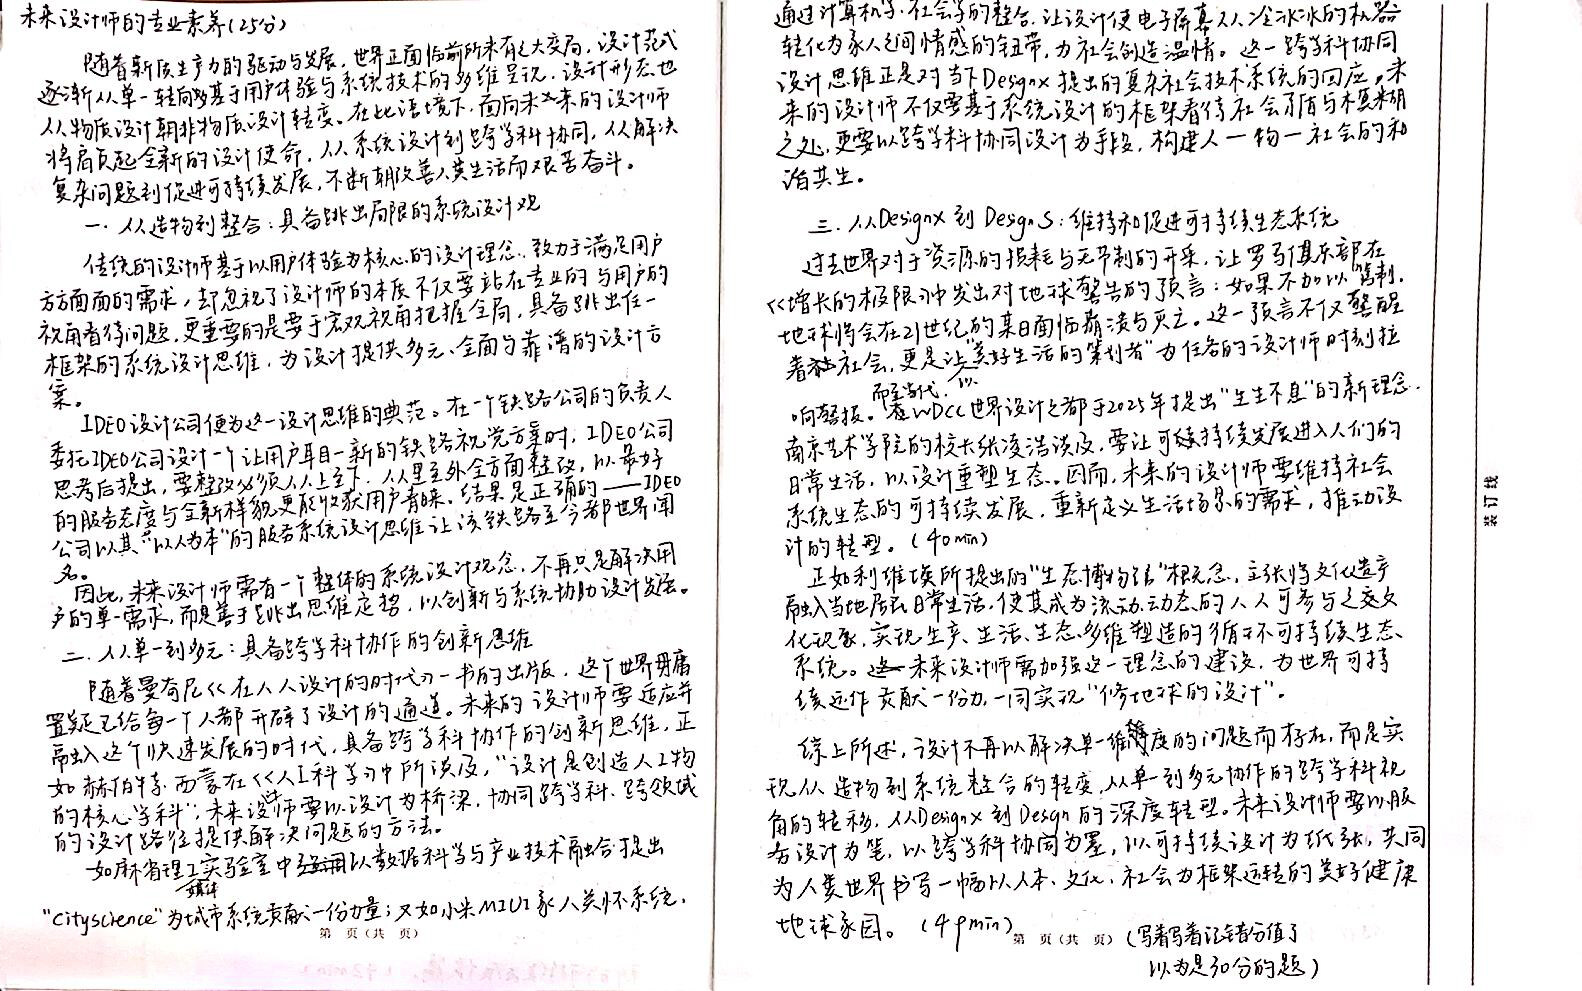 未来设计师的专业素养(25分)
随着新质生产力的驱动与发展，世界正面临前所未有之大变局，设计范式
逐渐从单一转向多基于用户体验与系统技术的多维呈现，设计形态也
从物质设计朝非物质设计转变。在此语境下，面向未来的设计师
将肩负起全新的设计使命，从系统设计到跨学科协同，从解决
复杂问题到促进可持续发展，不断朝改善人类生活而艰苦奋斗。
一、从造物到整合：具备跳出局限的系统设计观
传统的设计师基于以用户体验为核心的设计理念，致力于满足用户
方方面面的需求，却忽视了设计师的本质不仅要站在专业的与用户的
视角看待问题，更重要的是要于宏观视角把握全局，具备跳出任一
框架的系统设计思维，为设计提供多元、全面与靠谱的设计方
案。
IDEO设计公司便为这一设计思维的典范。在一个铁路公司的负责人
委托IDEO公司设计一个让用户耳目一新的铁路视觉方案时，IDEO公司
思考后提出，要整改必须从上至下，从里至外全方面整改，以最好
的服务态度与全新样貌更能收获用户青睐。结果是正确的——IDEO
公司以其"以人为本"的服务系统设计思维让该铁路至今都世界闻
名。
因此，未来设计师需有一个整体的系统设计观念，不再只是解决用
户的单一需求，而是善于跳出思维定势，以创新与系统协助设计发展。
二、从单一到多元：具备跨学科协作的创新思维
随着曼奇尼《在人人设计的时代》一书的出版，这个世界毋庸
置疑已给每一个人都开辟了设计的通道。未来的设计师要适应并
融入这个快速发展的时代，具备跨学科协作的创新思维，正
如赫伯特·西蒙在《人工科学》中所谈及，"设计是创造人工物
的核心学科"，未来设计师要以设计为桥梁，协同跨学科、跨领域
的设计路径提供解决问题的方法。
如麻省理工媒体实验室中以数据科学与产业技术融合提出
"cityscience"为城市系统贡献一份力量；又如小米MIUI家人关怀系统，
第 页(共 页)
通过计算机学、社会学的整合，让设计使电子屏幕从冷冰冰的机器
转化为家人之间情感的纽带，为社会创造温情。这一跨学科协同
设计思维正是对当下DesignX提出的复杂社会技术系统的回应。未
来的设计师不仅要基于系统设计的框架看待社会矛盾与模糊
之处，更要以跨学科协同设计为手段，构建人一物一社会的和
谐共生。
三、从DesignX到Design.S：维持和促进可持续生态系统
过去世界对于资源的损耗与无节制的开采，让罗马俱乐部在
《增长的极限》中发出对地球警告的预言：如果不加以管制，
地球将会在21世纪的某日面临崩溃与灭亡。这一预言不仅警醒
着社会，更是让以"美好生活的策划者"为任务的设计师时刻拉
响警报。而至当代，WDCC世界设计之都于2025年提出"生生不息"的新理念，
南京艺术学院的校长张凌浩谈及，要让可持续发展进入人们的
日常生活，以设计重塑生态。因而，未来的设计师要维持社会
系统生态的可持续发展，重新定义生活场景的需求，推动设
计的转型。(40min)
正如利维埃所提出的"生态博物馆"概念，主张将文化遗产
融入当地居民日常生活，使其成为流动、动态的人人可参与之文
化现象，实现生产、生活、生态多维塑造的循环可持续生态
系统。未来设计师需加强这一理念的建设，为世界可持
续运作贡献一份力，一同实现"修地球的设计"。
综上所述，设计不再以解决单一维度的问题而存在，而是实
现从造物到系统整合的转变，从单一到多元协作的跨学科视
角的转移，从DesignX到Design的深度转型。未来设计师要以服
务设计为笔，以跨学科协同为墨，以可持续设计为纸张，共同
为人类世界书写一幅以人本、文化、社会为框架运转的美好健康
地球家园。(49min)
第 页(共 页)
(写着写着记错分值了
以为是30分的题)
装订线